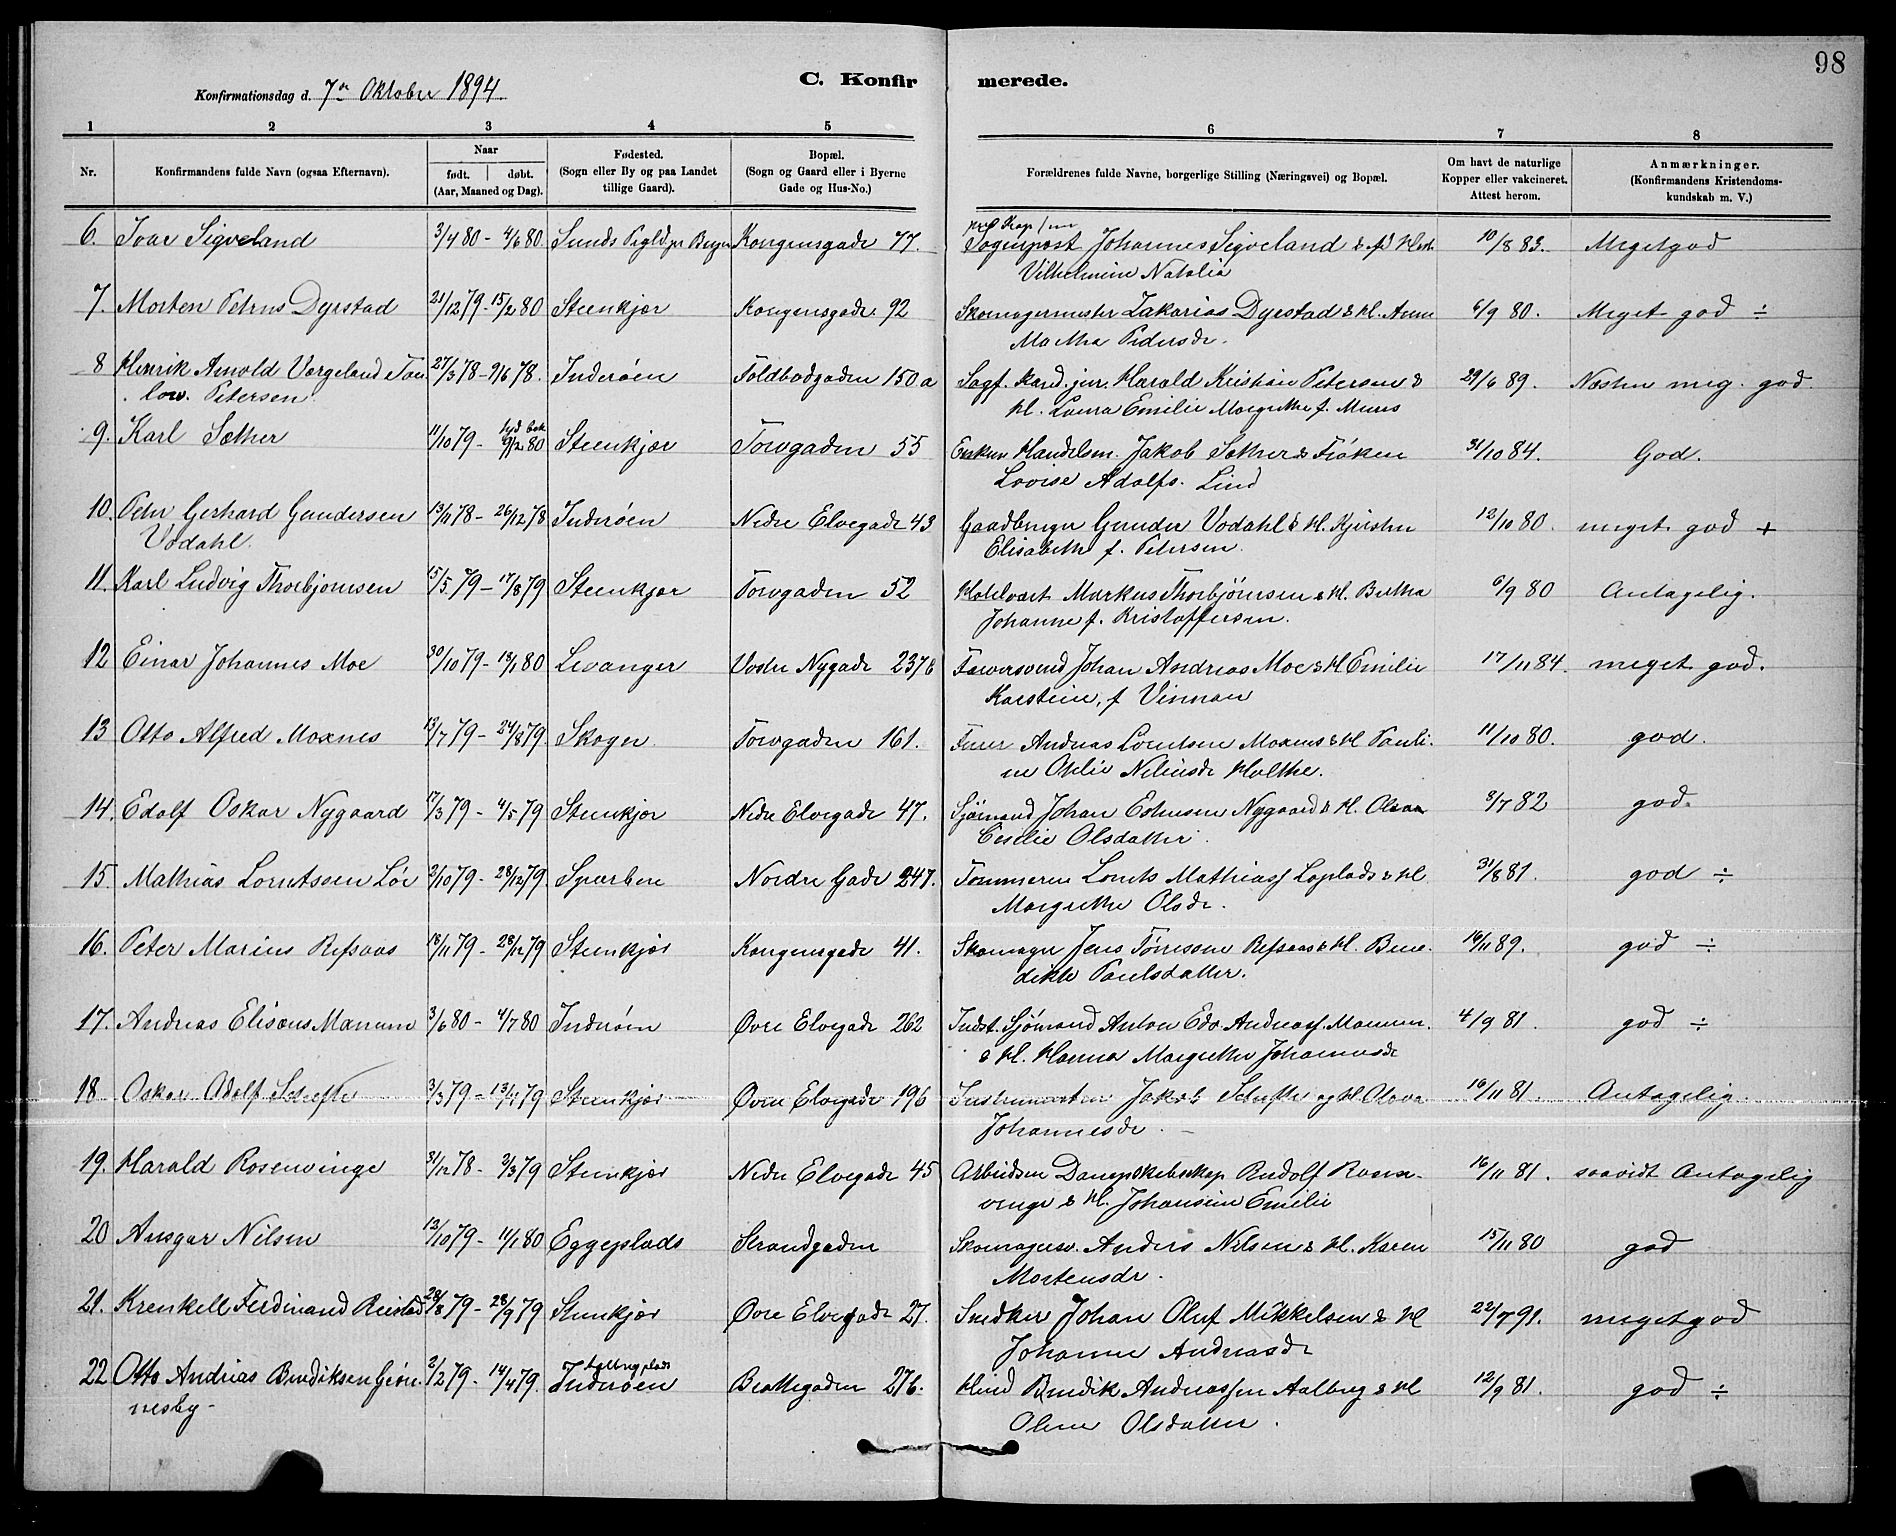 98
C. Konfirmerede.
Konfirmationsdag d. 7de Oktober 1894.
1 2 3 4 5 6 7 8
Nr. Konfirmandens fulde Navn (ogsaa Efternavn). Naar født. døbt. (Aar, Maaned og Dag). Fødested. (Sogn eller By og paa Landet tillige Gaard). Bopæl. (Sogn og Gaard eller i Byerne Gade og Hus-No.) Forældrenes fulde Navne, borgerlige Stilling (Næringsvei) og Bopæl. Om havt de naturlige Kopper eller vakcineret. Attest herom. Anmærkninger. (Konfirmandens Kristendomskundskab m. V.)
6. Ivar Sigveland 3/4 80 - 4/6 80. Sunds Bergen Kongensgade 77. Johannes Sigveland & 10/8 83. Megetgod
Vilhelmine Natalia
7. Morten Petrus Dyrstad 21/12 79 - 15/2 80 Steenkjær Kongensgade 92 Skomagermester Zakarias Dyrstad & H. Anne 6/9 80. Meget god ÷
Martha Pedersdr.
8 Henrik Arnold Vergeland Tou 27/3 78 - 9/6 78. Inderøen Toldbodgaden 150 a Sagf. Harald Kristian Petersen & 29/6 89. Næsten meg. god
low. Petersen H. Laura Emilie Margrethe f.
9. Karl Sæther 11/10 79 - 9/12 80 Steenkjær Torvgaden 55 Handelsm. Jakob Sæther & Frøken 31/10 84. God.
Lovise Adolfs. Lind
10. Peter Gerhard Gundersen 13/11 78 - 26/12 78 Inderøen Nedre Elvegade 43 Gaardbruger Gunder Vodahl & H. Kjersten 12/10 80. meget god +
Vodahl. Elisabeth f. Petersen.
11. Karl Ludvig Thorbjørnsen 15/5 79 - 17/8 79 Steenkjær Torvgaden 52 Hotelvært Markus Thorbjørnsen & H. Bertha 6/9 80 Antagelig.
Johanne f. Kristoffersen.
12 Einar Johannes Moe 30/10 79 - 18/1 80 Levanger Nygade 237 b Farversvend Johan Andreas Moe & H Emilie 17/11 84. meget god.
Karstine, f Vinnan
13 Otto Alfred Moxnes 13/7 79 - 24/8 79. Skogn Torvgaden 161. Andreas Lorntsen Moxnes & H Pauli- 11/10 80. god.
ne Otelie Nilsdr Holthe.
14. Edolf Oskar Nygaard 17/3 79 - 4/5 79 Steenkjær Nedre Elvegade 47. Sjømand Johan Nygaard & H. 3/7 82 god.
Cesilie Olsdatter.
15. Mathias Lorntsen Lø 2/10 79 - 28/12 79. Sparben Nordre Gade 247. Lornts Mathiass Løplads & H 31/8 81. god ÷
Margrethe Olsdr.
16. Peter Marius Refsaas 18/11 79 - 28/12 79 Steenkjær Kongensgade 41. Skomager Jens Tørrissen Refsaas & H. Bene- 16/11 89. god ÷
dikte Paulsdatter.
17. Andreas Elisæus Manum 3/6 80 - 4/7 80 Inderøen Øvre Elvegade 262 Indst. Sjømand Anton Edv. Andreass. Manum 4/9 81. god ÷
& H. Hanna Margrethe Johannesdr
18 Oskar Adolf Schefte 3/3 79 - 13/4 79 Steenkjær Øvre Elvegade 196 Jakob Schefte og H Olava 16/11 81. Antagelig.
Johannesdr.
19. Harald Rosenvinge 31/12 78 - 2/3 79 Steenkjær Nedre Elvegade 45 Rudolf Rosen- 16/11 81. saavidt Antagelig
vinge & H. Johansine Emelie
20 Ansgar Nilsen 12/10 79 - 11/1 80 Eggeplads Strandgaden Skomagersv. Anders Nilsen & H. Karen 15/11 80 god
Mortensdr.
21. Krenkell Ferdinand Reistad 28/8 79 - 28/9 79 Steenkjær Øvre Elvegade 27. Snedker Johan Oluf Mikkelsen & H 22/7 91. megetgod
Johanne Andreasdr
22 Otto Andrias Bendiksen 2/2 79 - 14/4 79. Aalbergplads Inderøen Brattegaden 276. Bendik Andreassen Aalberg & H 12/9 81. god ÷
nesby- Oline Olsdatter.